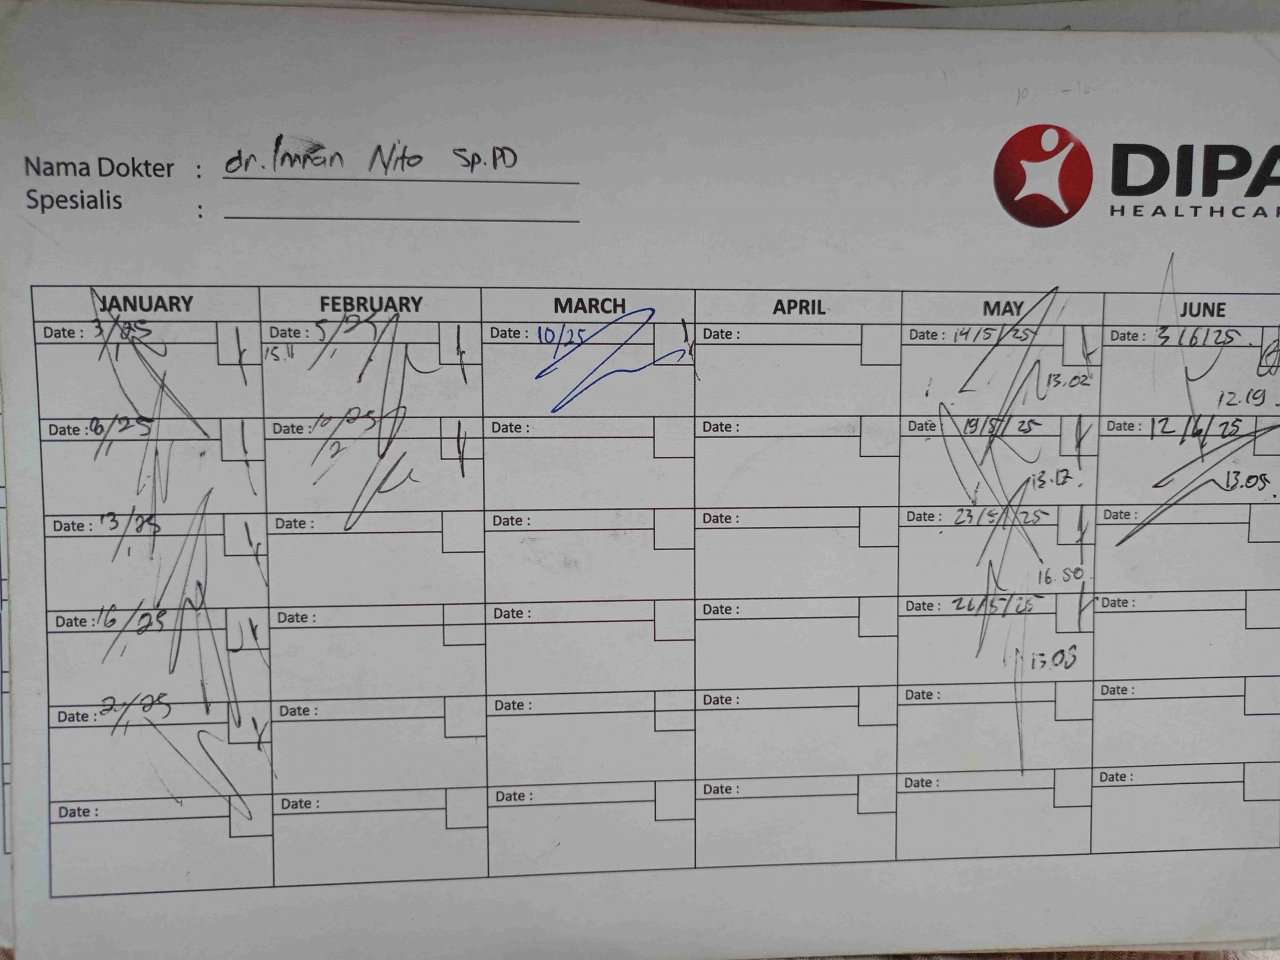 Nama Dokter : dr. Imran Nito Sp.PD
Spesialis :
DIPA
HEALTHCAR
JANUARY FEBRUARY MARCH APRIL MAY JUNE
Date : 3/25 Date : 5/25 Date : 10/25 Date : Date : 14/5/25 Date : 3/6/25.
15.11 13.02 12.19
Date : 8/25 Date : 10/25 Date : Date : Date : 19/5/25 Date : 12/6/25
2 13.17 13.05
Date : 13/25 Date : Date : Date : Date : 23/5/25 Date :
16.50
Date : 16/25 Date : Date : Date : Date : 26/5/25 Date :
13.03
Date : Date : Date : Date : Date : Date :
Date : Date : Date : Date : Date : Date :